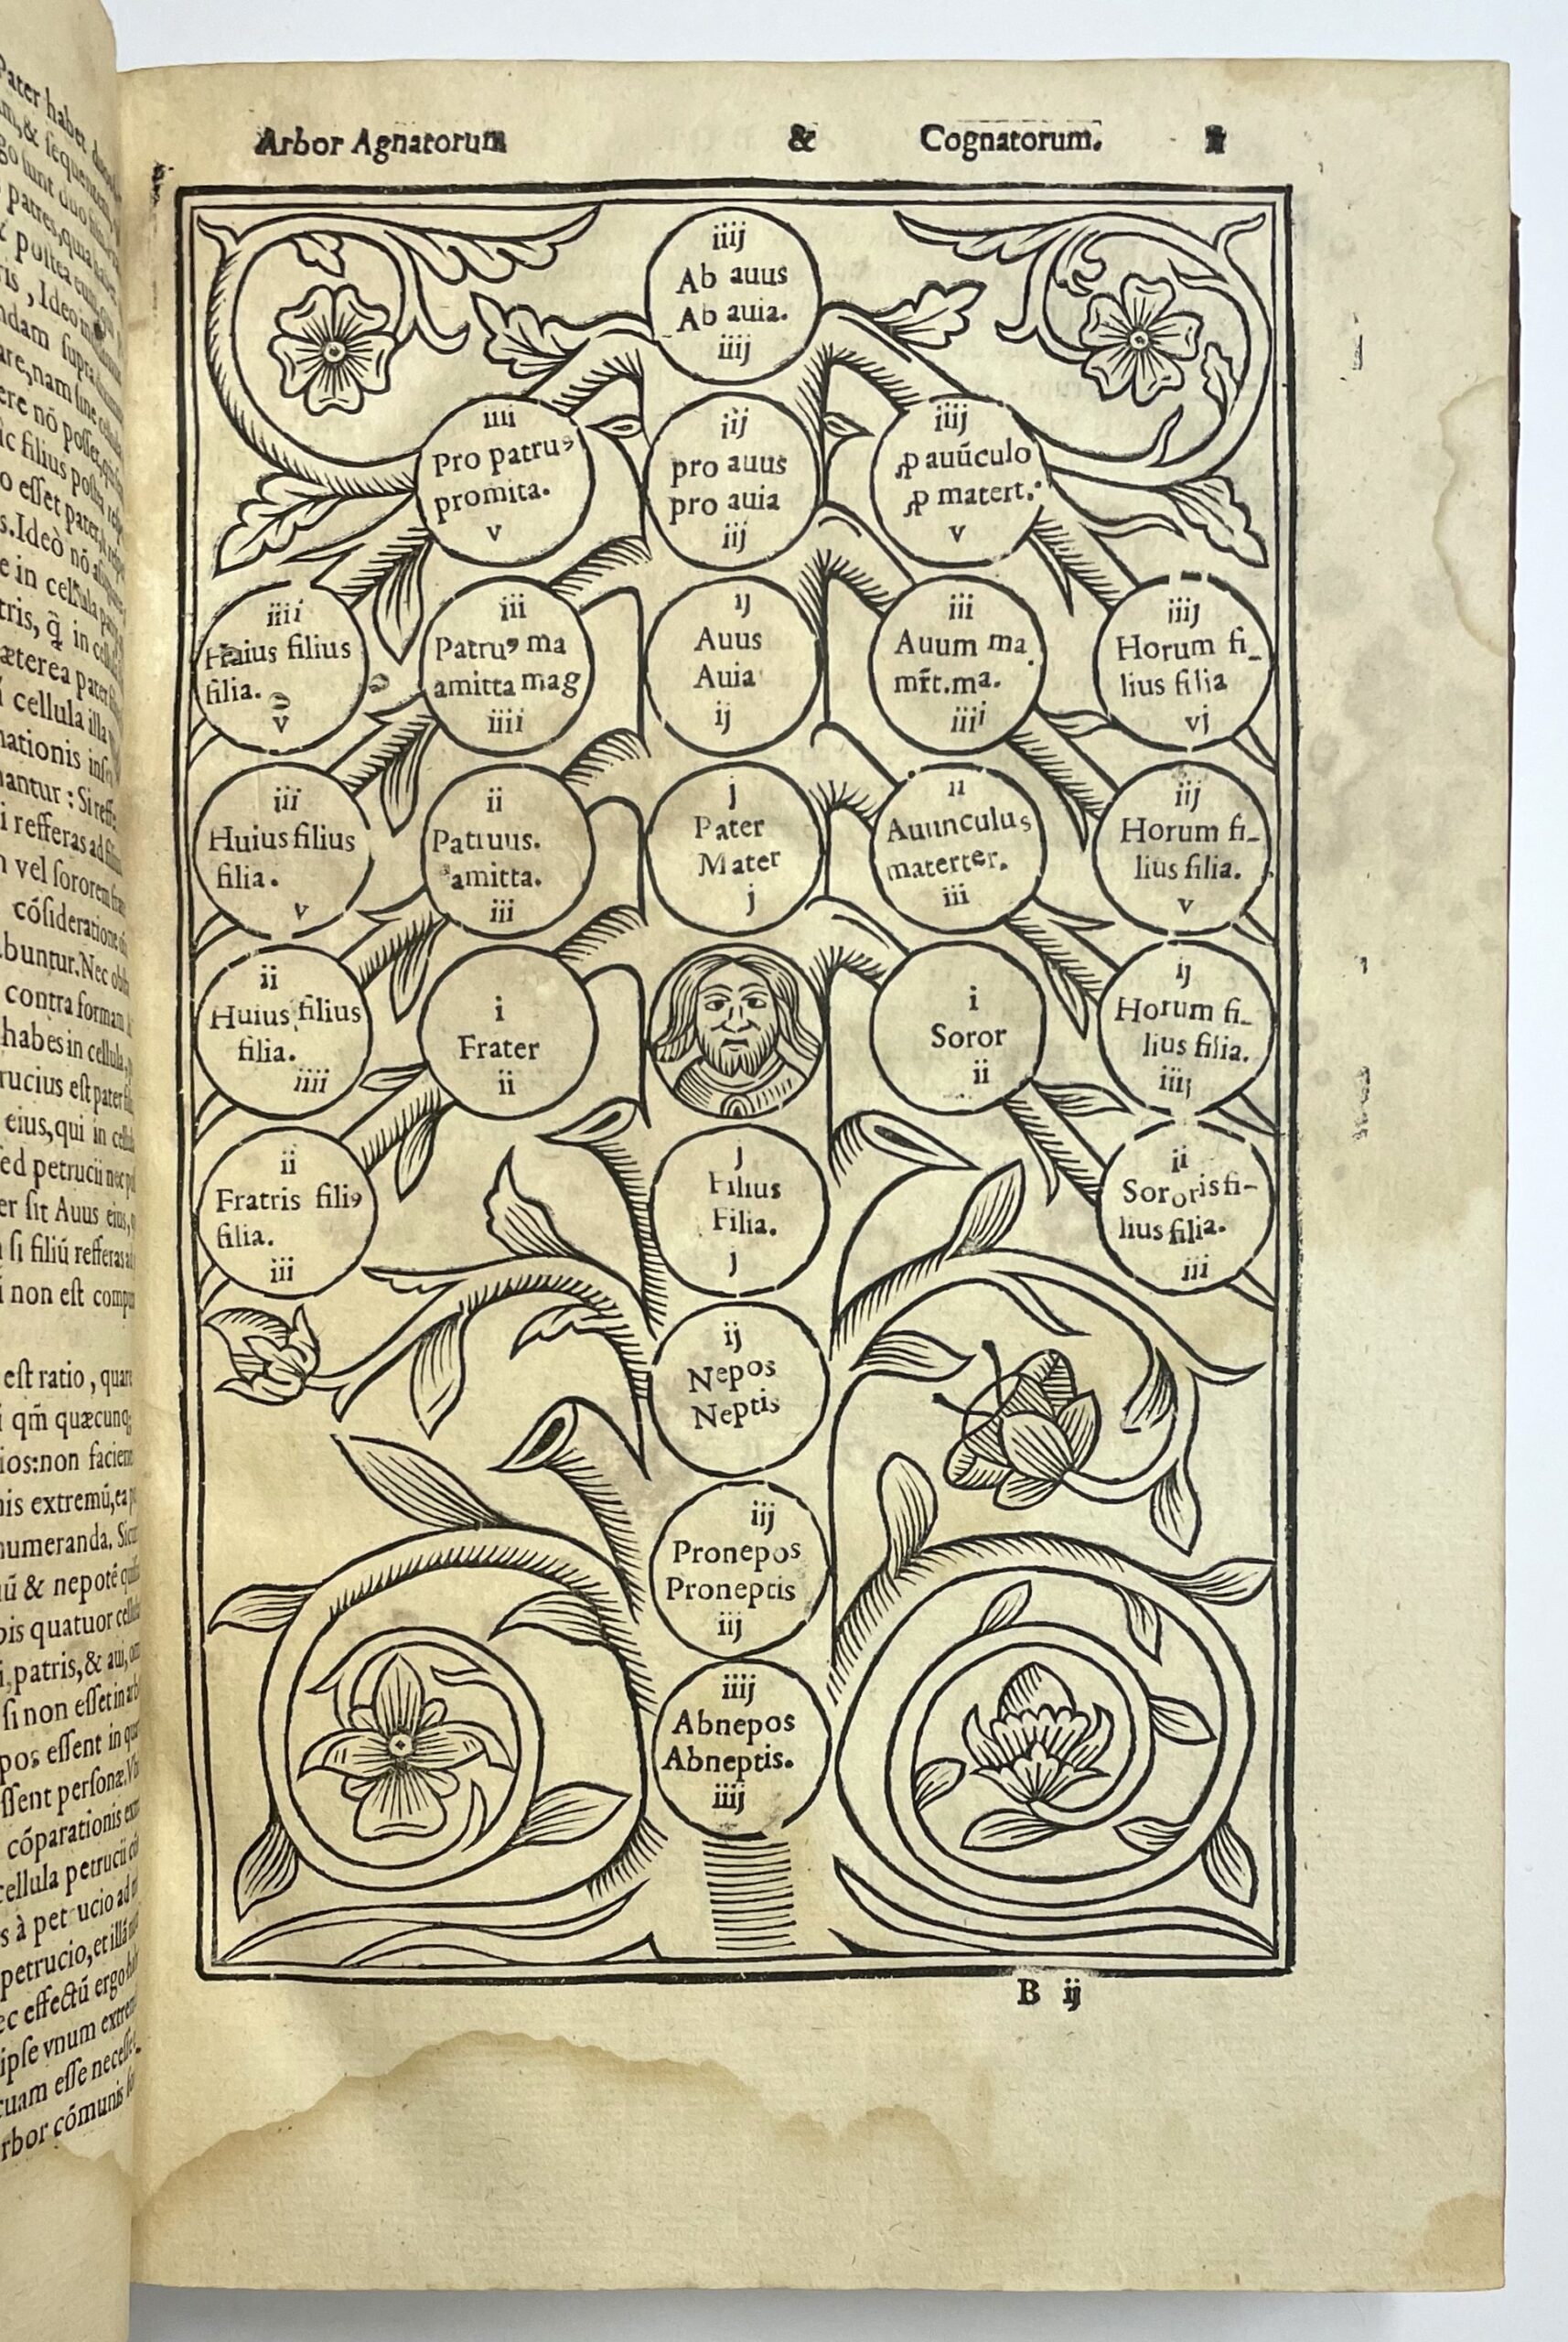 Pater habet
m, & sequentem,
go sunt duo
patres, qua
Postea eum
ris, Ideo
ndam supra
are, nam sine
ere nō posset,
ic filius
o esset pater,
s. Ideò nō
e in cellula
tris, q̃ in
æterea pater
i cellula illa
nationis
nantur: Si
i refferas ad
n vel sororem
cósideratione
buntur. Nec
contra formam
habes in cellula,
rucius est pater
eius, qui in
sed petrucii nec
er sit Auus eius,
n si filiú refferas
i non est
est ratio, quare
i qm̃ quæcunq;
ios: non
nis extremú, ea
numeranda.
iū & nepotē
bis quatuor
i, patris, & aui,
si non esset in
pos essent in
ssent personæ.
cóparationis
cellula petrucii
s à petrucio ad
petrucio, et
ec effectū ergo
ipse vnum
cuam esse
rbor cómunis
Arbor Agnatorum & Cognatorum.
iiij
Ab auus
Ab auia.
iiij
iiii
Pro patruꝰ
promita.
v
iij
pro auus
pro auia
iij
iiij
ꝓ auūculo
ꝓ matert.
v
iiii
Huius filius
filia.
v
iii
Patruꝰ ma
amitta mag
iiii
ij
Auus
Auia
ij
iii
Auum ma
mr̃t.ma.
iiii
iiij
Horum fi-
lius filia
vj
iii
Huius filius
filia.
v
ii
Patruus.
amitta.
iii
j
Pater
Mater
j
ii
Auunculus
materter.
iii
iij
Horum fi-
lius filia.
v
ii
Huius filius
filia.
iiii
i
Frater
ii
i
Soror
ii
ij
Horum fi-
lius filia.
iiij
ii
Fratris filiꝰ
filia.
iii
j
Filius
Filia.
j
ii
Sororis fi-
lius filia.
iii
ij
Nepos
Neptis
iij
Pronepos
Proneptis
iij
iiij
Abnepos
Abneptis.
iiij
B ij